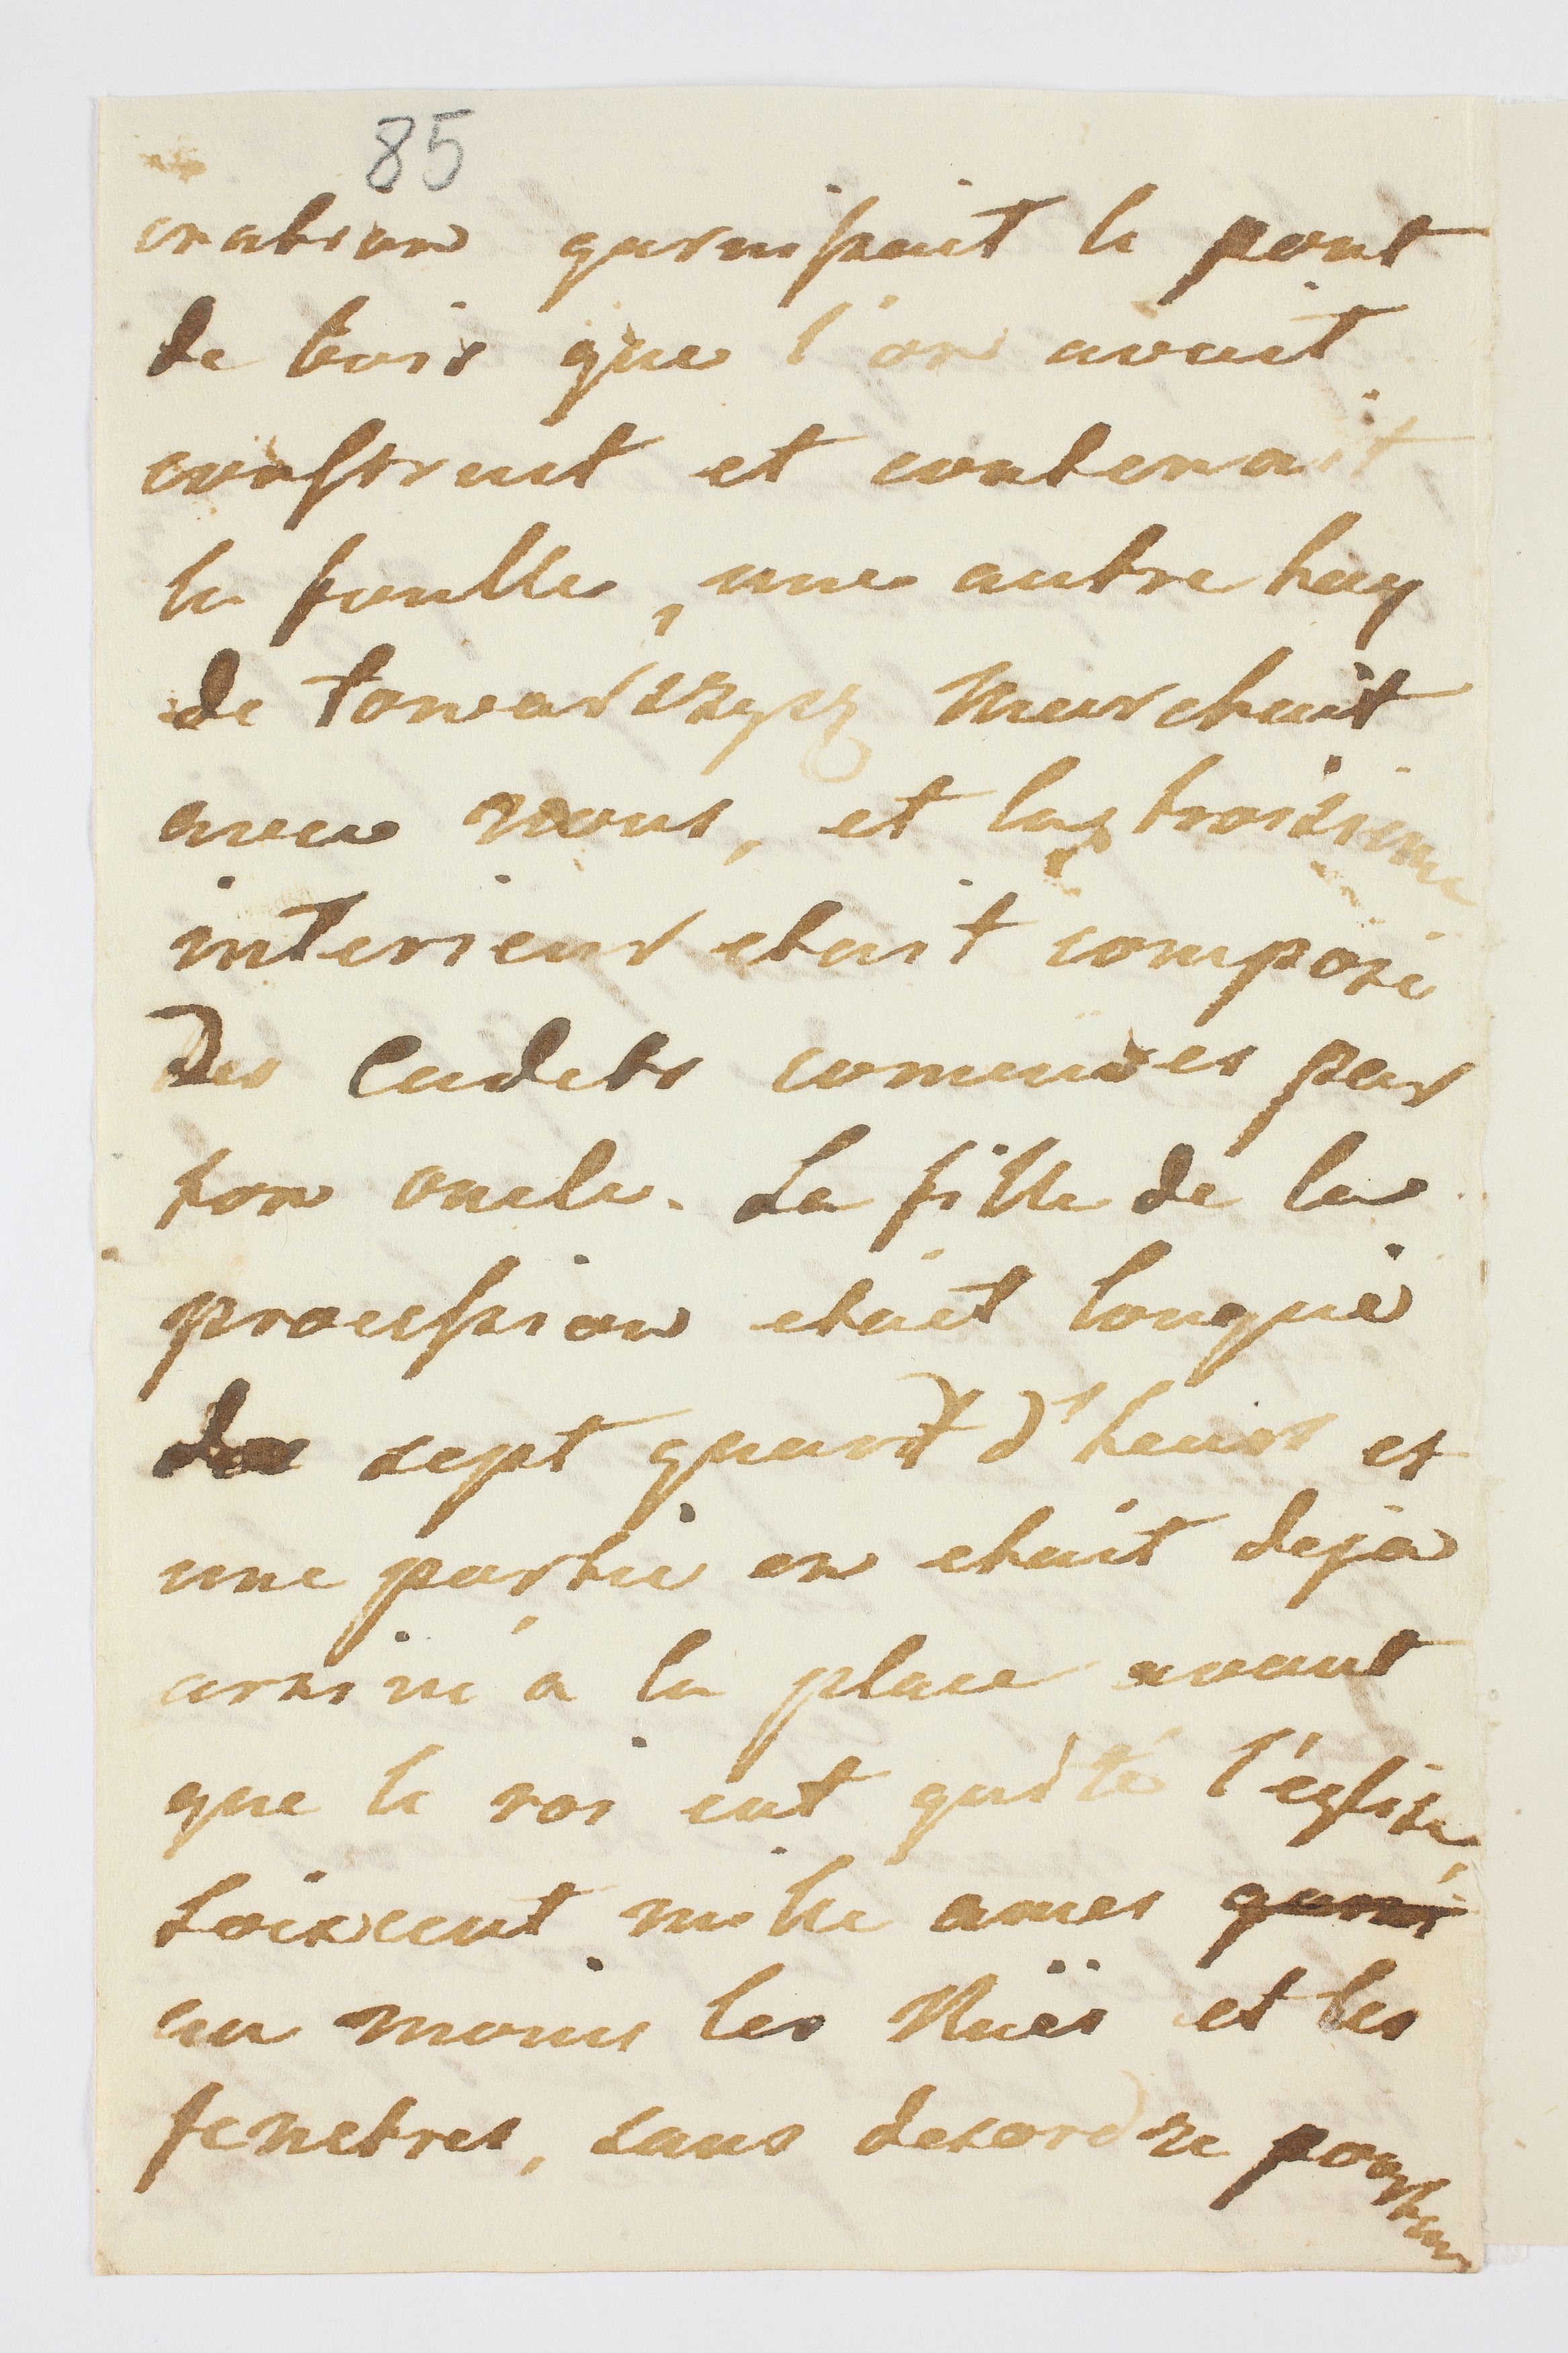 85
cration garnissait le pont
de bois que l'on avait
construit et contenait
la foulle, une autre hay
de towarszysz marchait
avec nous, et la troisieme
interieur etait composé
Des Cadets comandes par
ton oncle. La fille de la
procession etait longue
de sept quart d'heurs et
une partie en etait deja
arrivé a la place avant
que le roi eut quité l'église,
soixcent mille ames garni
au moins les Ruës et les
fenetres, sans desordre pourtant